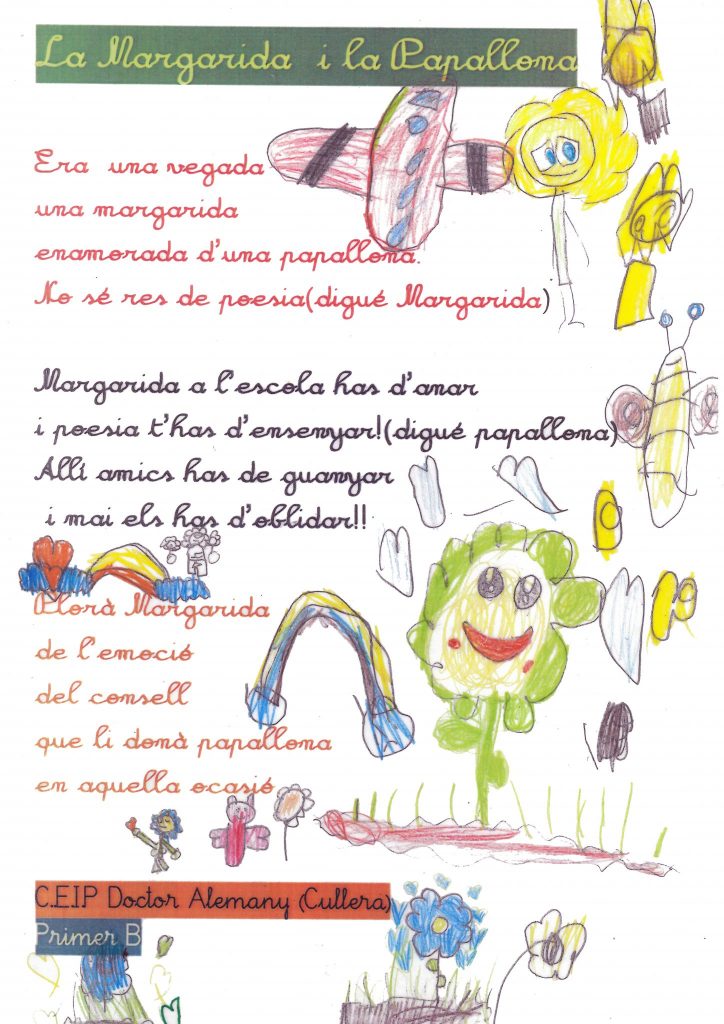 La Margarida i la Papallona
Era una vegada
una margarida
enamorada d'una papallona.
No sé res de poesia(digué Margarida)
Margarida a l'escola has d'anar
i poesia t'has d'ensenyar!(digué papallona)
Allí amics has de guanyar
i mai els has d'oblidar!!
Plorà Margarida
de l'emoció
del consell
que li donà papallona
en aquella ocasió
C.E.I.P Doctor Alemany (Cullera)
Primer B